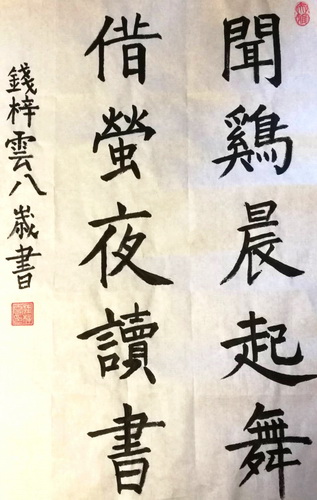 聞鷄晨起舞
借螢夜讀書
錢梓雲八歲書